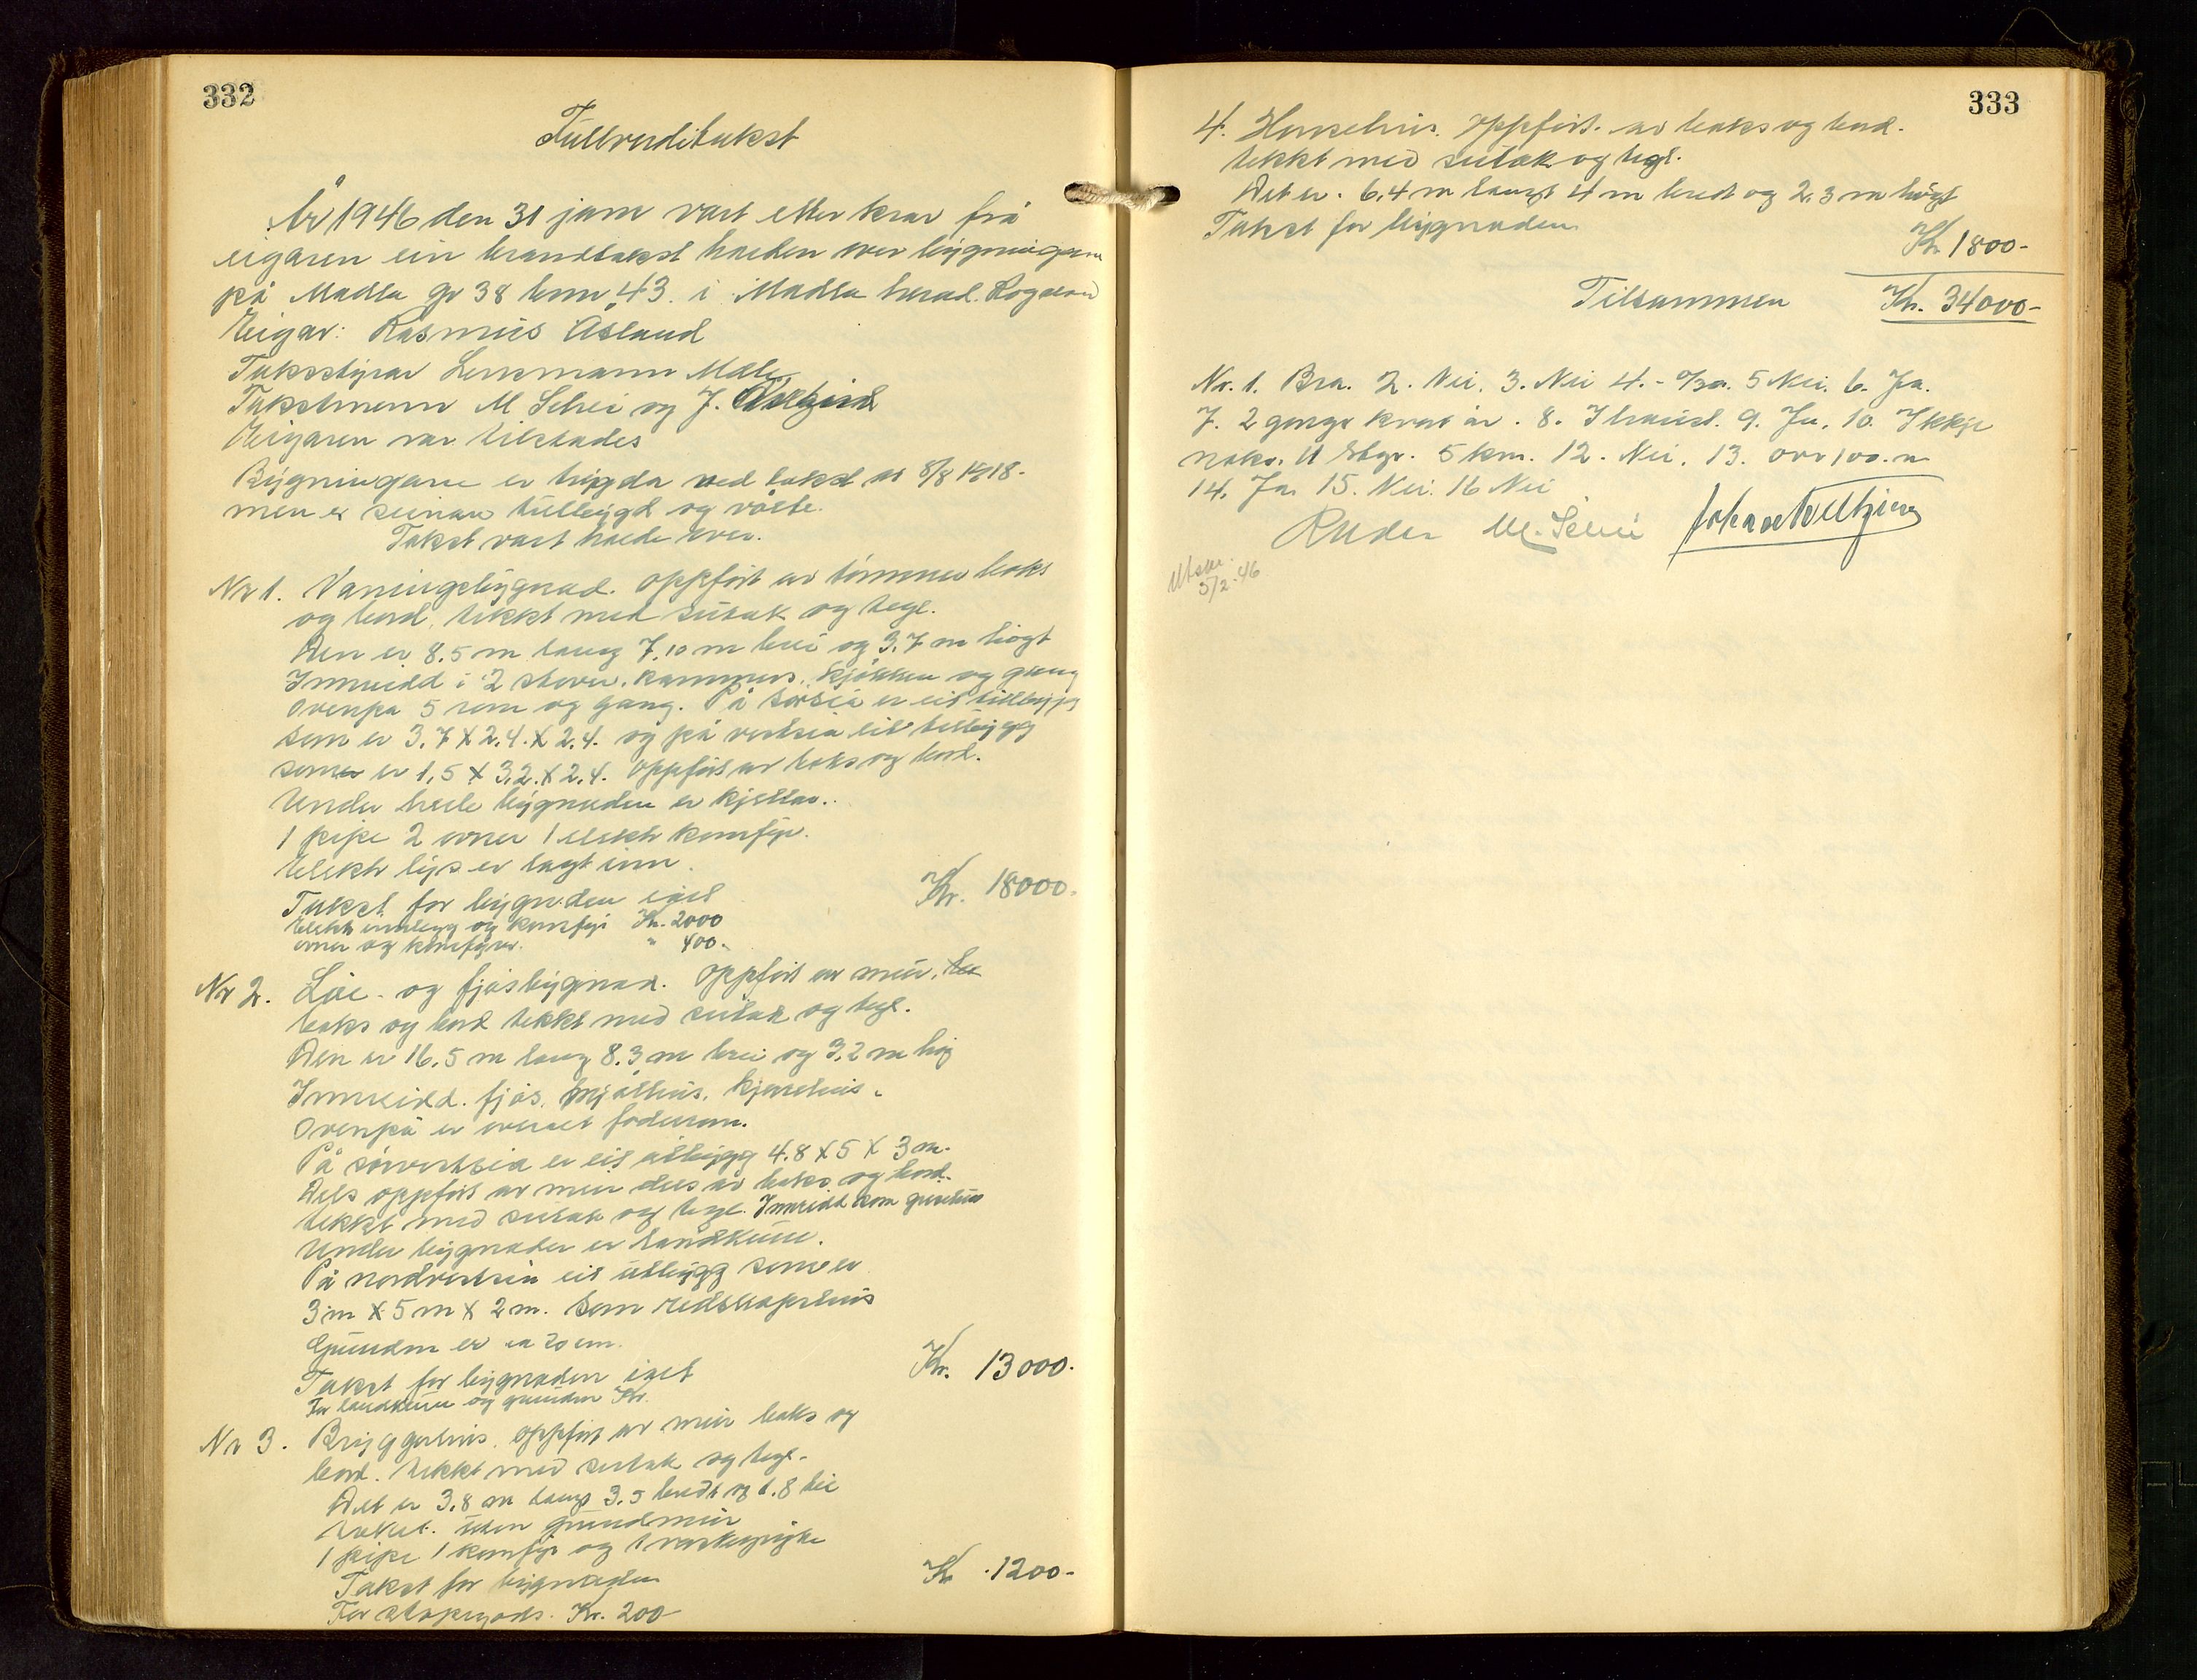 332
Fullverditakst
År 1946 den 31 jam vart etter krav frå
eigaren ein brandtakst halden over bygningane
på Madla gr 38 bnr 43. i Madla herad. Rogaland
Eigar: Rasmus Åsland
Takststyrar Lensmann Male
Takstmenn M Schei og J.
Eigaren var tilstades
Bygningane er bygda ved takst av 8/8 1918.
men er seinare tillbygd og vølte.
Takst vart halde over.
Nr 1. Vaningsbygnad. Oppført av tømmer boks
og bord, tekkt med sutak og tegl.
Den er 8.5 m lang 7,10 m brei og 3,7 m høgt
Innreidd i 2 stover, kammers, kjøkken og gang
Ovenpå 5 rom og gang. På sørsia er eit tillbygg
som er 3,7 X 2,4 X 2,4. og på vestsia eit tillbygg
som er 1,5 X 3,2 X 2,4. Oppført av boks og bord.
Under heile bygnaden er kjellar.
1 pipe 2 ovner 1 elektr komfyr.
Elektr lys er lagt inn.
Takst for bygnaden i alt Kr. 18000.
Elektr innlegg og komfyr Kr. 2000
ovner og komfyrer. " 400.
Nr 2. Løe- og fjøsbygnad. Oppført av mur,
boks og bord tekkt med sutak og tegl.
Den er 16,5 m lang 8,3 m brei og 3,2 m høg
Innreidd. fjøs, mjølhus, kjerrehus.
Ovenpå er overalt foderrom.
På sørvestsia er eit utbygg 4,8 X 5 X 3 m.
Dels oppført av mur dels av boks og bord.
tekkt med sutak og tegl. Innreidd som grisehus
Under bygnaden er landkum.
På nordvestsia eit utbygg som er
3 m X 5 m X 2 m. Som redskapshus
Grunden er ca 20 cm.
Takst for bygnaden i alt Kr. 13000.
For landkum og grunden Kr.
Nr 3. Bryggarhus, oppført av mur boks og
bord. tekkt med sutak og tegl.
Det er 3,8 m langt 3,5 bredt og 1,8 til
taket. uten grundmur
1 pipe 1 komfyr og 1 vaskegryte
Takst for bygnaden Kr. 1200-
For støpegods. Kr. 200
333
4. Hønsehus. Oppført. av boks og bord.
tekkt med sutak og tegl.
Det er. 6,4 m langt 4 m bredt og 2,3 m høgt
Takst for bygnaden
Kr 1800-
Tilsammen Kr. 34000-
Nr. 1. Bra. 2. Nei. 3. Nei 4. - 5 Nei. 6. Ja.
7. 2 gonge kvart år. 8. I haust. 9. Ja. 10. Ikkje
noko. 11 Stgr. 5 km. 12. Nei. 13. ovr 100. m
14. Ja 15. Nei. 16 Nei
M. Schei
Utskr.
5/2-46